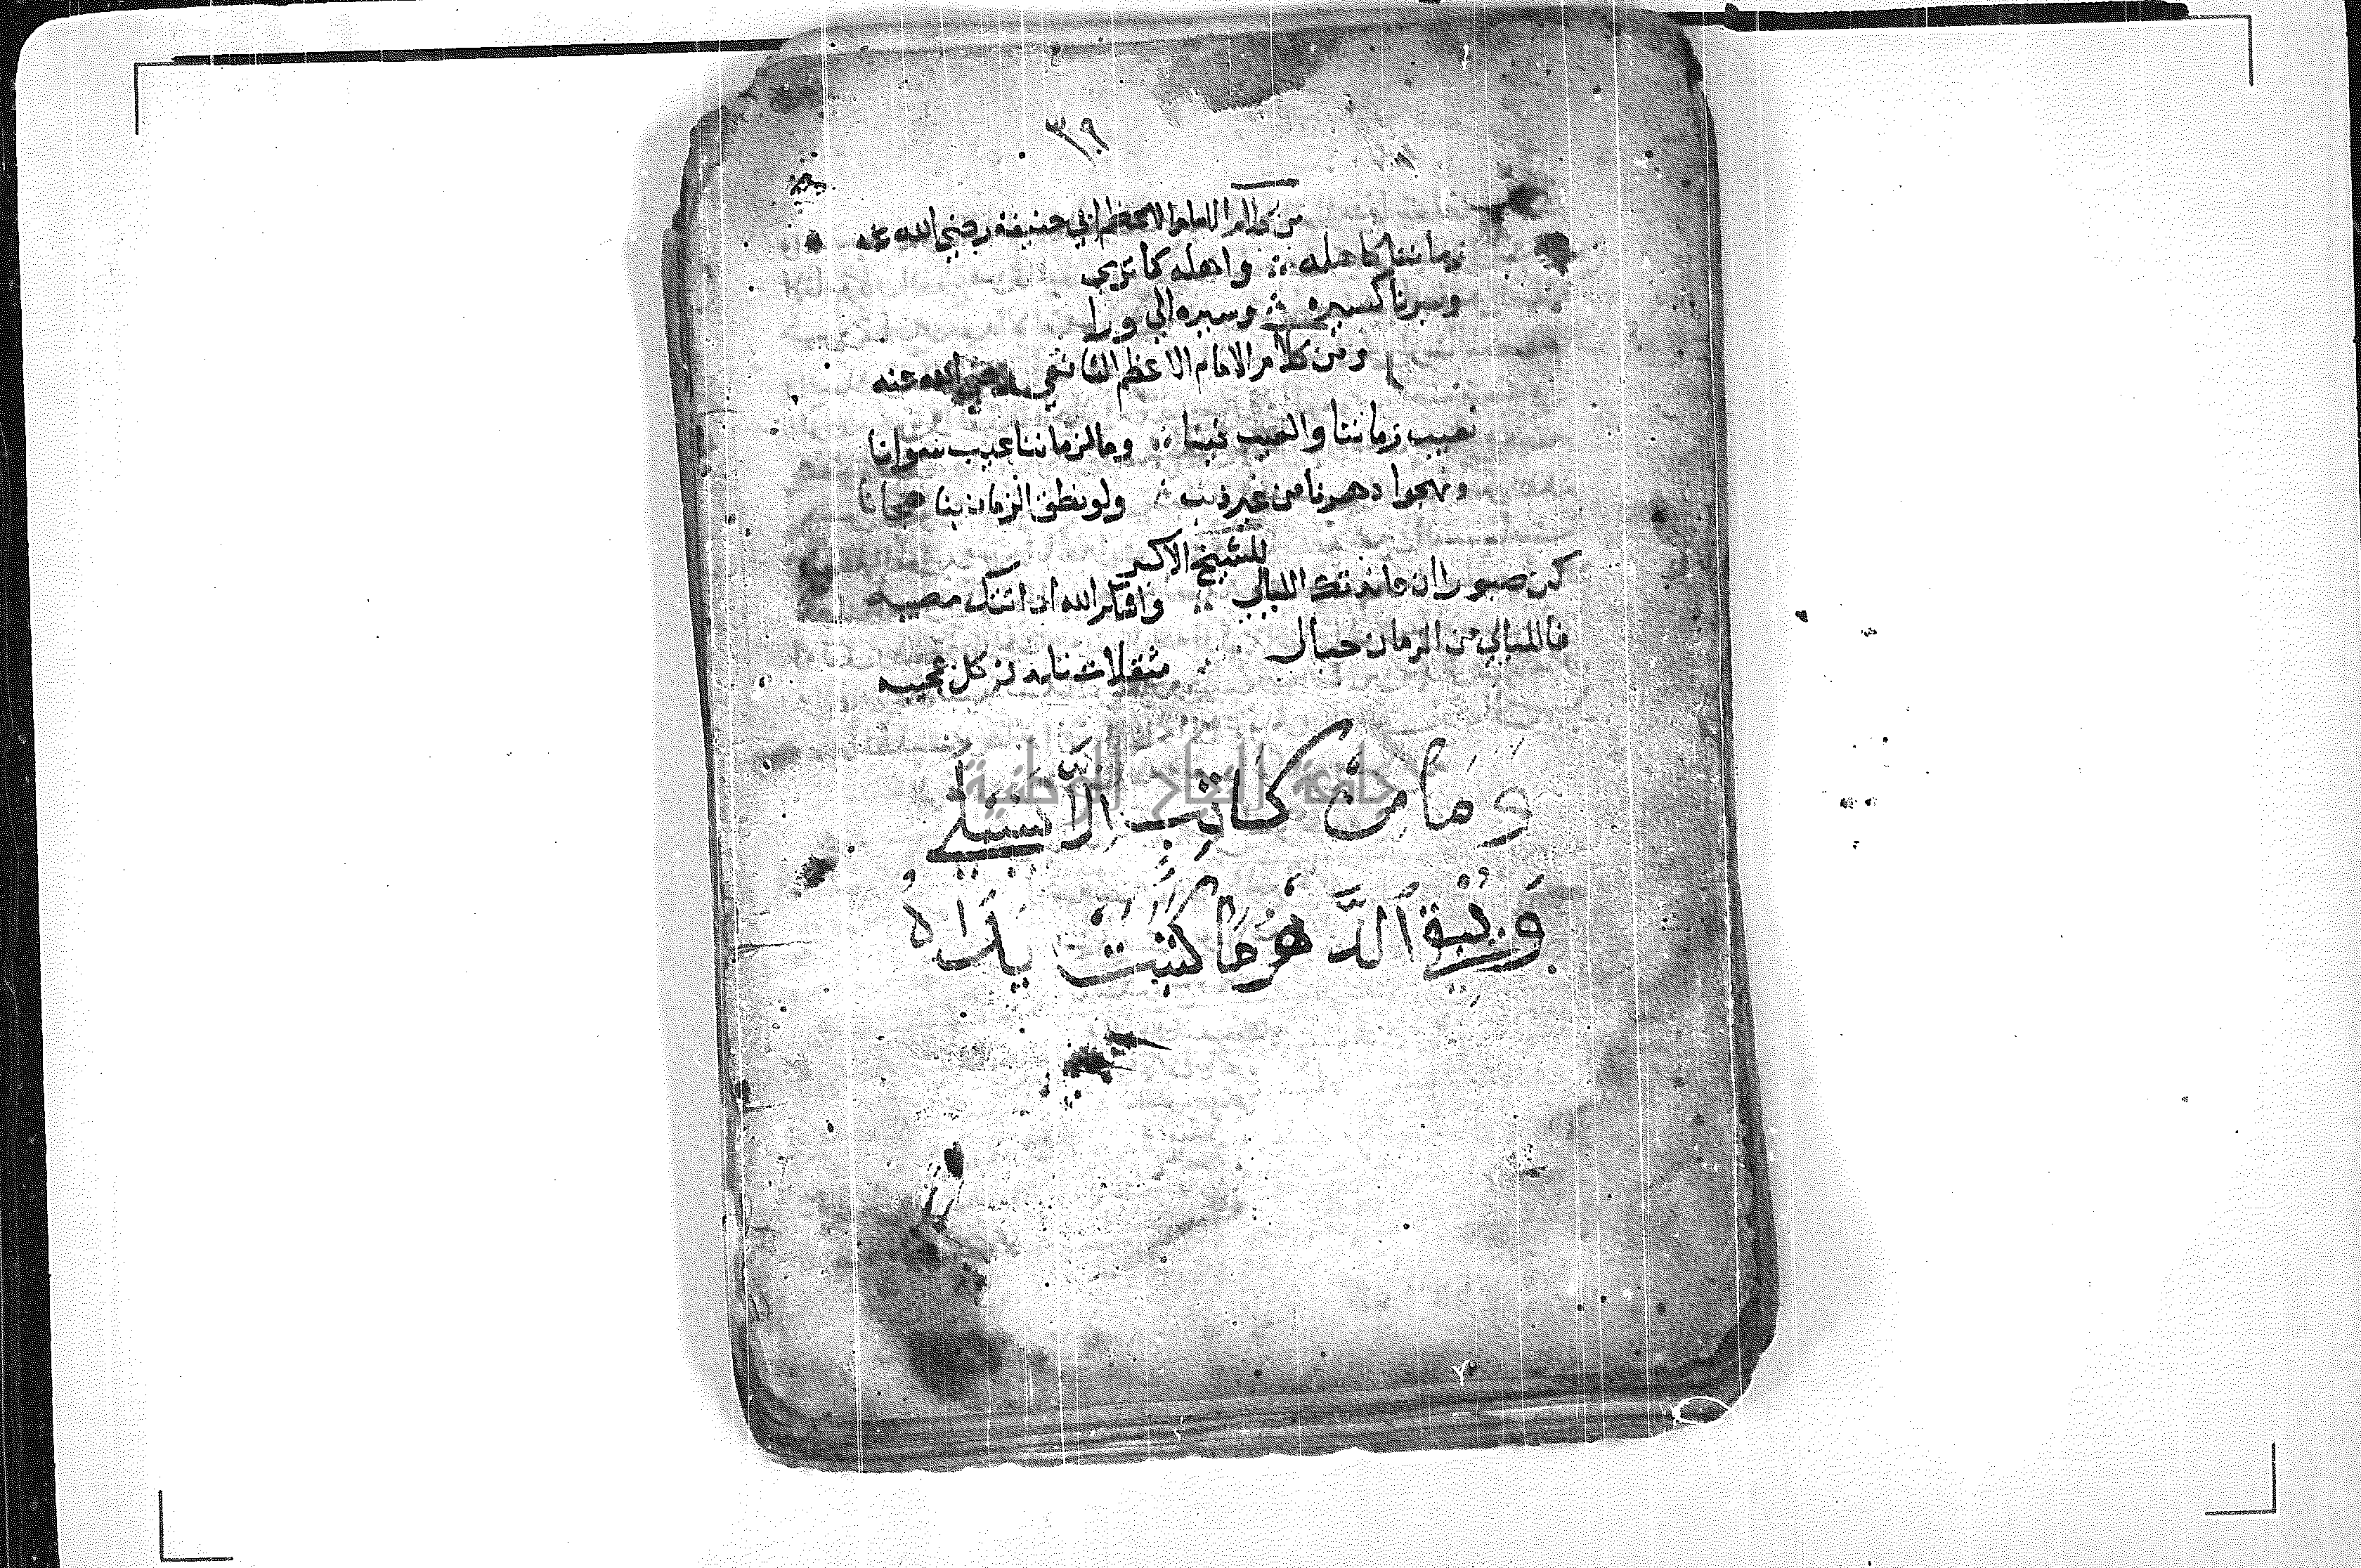 ٣٩
من كلام الامام الاعظم ابي حنيفة رضي الله عنه
زماننا كاهله ∴ واهله كما تري
وسيرنا كسيره ∴ وسيره الي ورا
ومن كلام الامام الاعظم الشافعي رضي الله عنه
نعيب زماننا والعيب فينا ∴ وما لزماننا عيب سوانا
ونهجوا دهرنا من غير ذنب ∴ ولو نطق الزمان بنا هجانا
للشيخ الاكبر
كن صبورا ان عاندتك الليالي ∴ واشكر الله ان اتتك مصيبه
فالليالي من الزمان حبالى ∴ مثقلات تلدن كل عجيبه
وَمَا مِنْ كَاتِبٍ اِلَّا سَيَبْلَى
جامعة النجاح الوطنية
وَيُبْقِي الدَّهْرُ مَا كَتَبَتْ يَدَاهُ